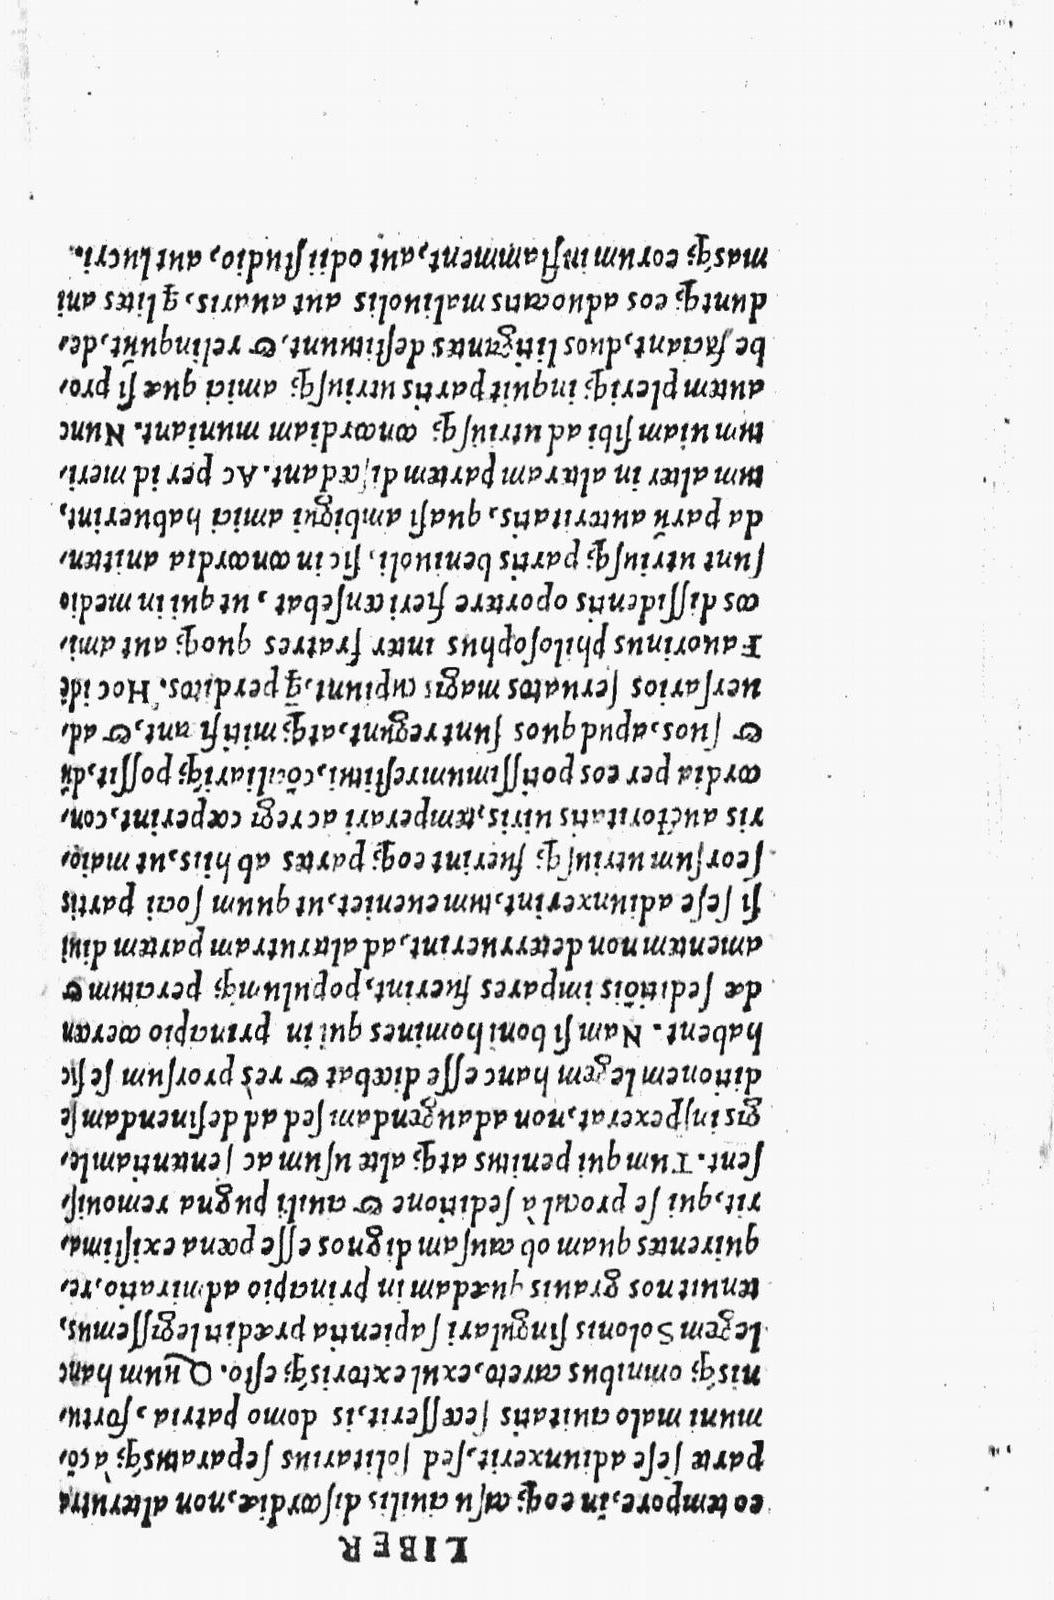 LIBER
eo tempore, in eoq́; casu ciuilis discordiæ, non alterutra
parte sese adiunxerit, sed solitarius separatusq́; à cō⸗
muni malo ciuitatis secesserit, is domo patria, fortu⸗
nisq́; omnibus careto, exul extorrisq́; esto. Quum hanc
legem Solonis singulari sapientia præditi legissemus,
tenuit nos grauis quædam in principio admiratio, re⸗
quirentes quam ob causam dignos esse pœna existima⸗
rit, qui se procul à seditione & ciuili pugna remouis⸗
sent. Tum qui penitus atq́; alte usum ac sententiam le⸗
gis inspexerat, non ad augendam sed ad desinendam se
ditionem legem hanc esse dicebat & res prorsum se sic
habent. Nam si boni homines qui in principio coercen
dæ seditiōis impares fuerint, populumq́; percitum &
amentem non deterruerint, ad alterutram partem diui
si sese adiunxerint, tum eueniet, ut quum socii partis
seorsum utriusq́; fuerint eoq́; partes ab hiis, ut maio⸗
ris auctoritatis uiris, temperari ac regi cœperint, con⸗
cordia per eos potissimum restitui, cōciliariq́; possit, dū
& suos, apud quos sunt regūt, atq́; mitificant, & ad⸗
uersarios seruatos magis cupiunt, q̄ perditos. Hoc idē
Fauorinus philosophus inter fratres quoq́; aut ami⸗
cos dissidentis oportere fieri censebat, ut qui in medio
sunt utriusq́; partis beniuoli, si in concordia anitten⸗
da parū autoritatis, quasi ambigui amici habuerint,
tum alter in alteram partem discedant. Ac per id meri⸗
tum uiam sibi ad utriusq́; concordiam muniant. Nunc
autem pleriq́; inquit partis utriusq́; amici quæ si pro⸗
be faciant, duos litigantes destituunt, & relinquūt, de⸗
duntq́; eos aduocatis maliuolis aut auaris, q̄ lites ani
masq́; eorum inflamment, aut odii studio, aut lucri.